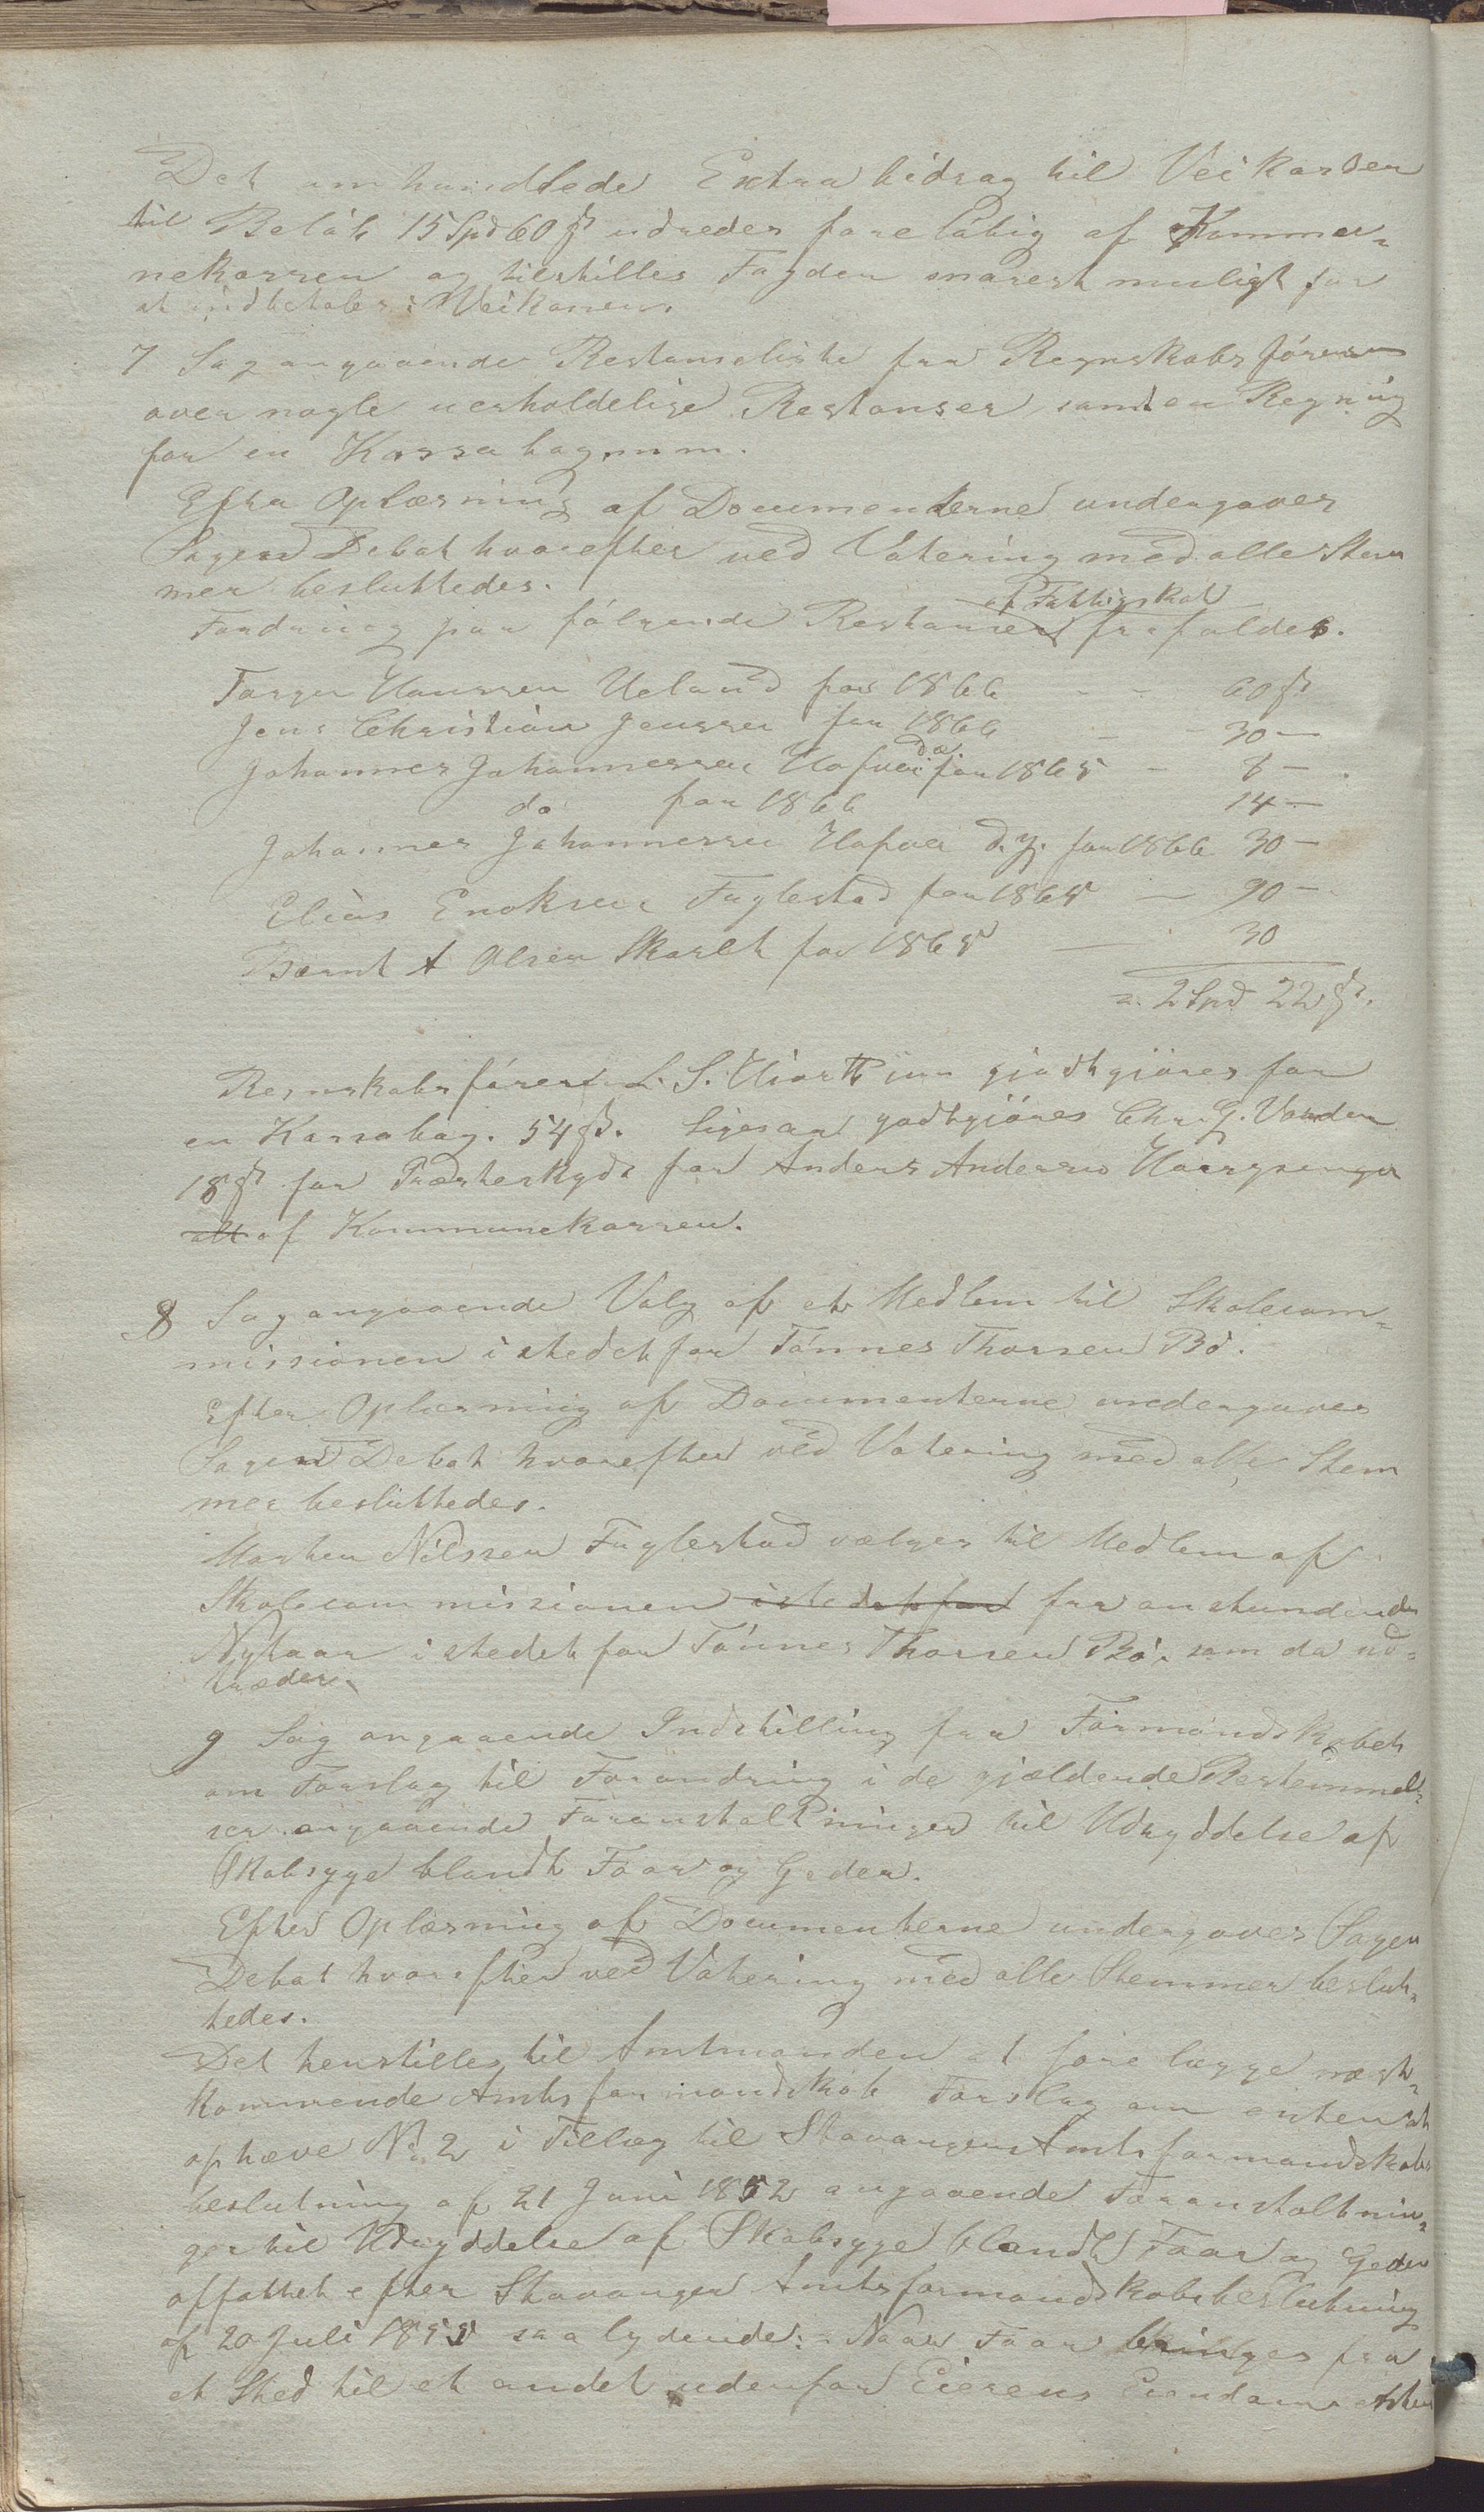 Det omhandlede Extrabidrag til Veikassen
til Beløb 15 Spd 60 ß udredes foreløbig af Kommu-
nekassen og tilstilles Fogden snarest muligt for
at indbetales i Veikassen.
7 Sag angaaende Restanseliste fra Regnskabsføreren
over nogle uerholdelige Restanser samt en Regning
for en Kassabog m.m.
Efter Oplæsning af Documenterne undergaves
Sagen Debat hvorefter ved Votering med alle Stem
mer besluttedes.
af Fattigskat
Fordring paa følgende Restanser frafaldes.
Torger Hanssen Ueland for 1866 - - 60 ß
Jens Christian Jenssen for 1866 - - 30 —
Johannes Johannessen Hafver d.æ. for 1865 - 8 —
do for 1866 14 —
Johannes Johannessen Hafver d.y. for 1866 30 —
Elias Enoksen Fuglestad for 1865 — 90 —
Bernt A Olsen Skarlt for 1865 — 30
= 2 Spd 22 ß.
Regnskabsfører L. S. Hiorth jun godtgjøres for
en Kassabog. 54 ß. Ligesaa godtgjøres Chr. G.
18 ß for Præsteskyds for Anders Anderssen
alt af Kommunekassen.
8 Sag angaaende Valg af et Medlem til Skolecom-
missionen istedetfor Tønnes Thorsen Bø.
Efter Oplæsning af Documenterne undergaves
Sagen Debat hvorefter ved Votering med alle Stem
mer besluttedes.
Morten Nilssen Fuglestad vælges til Medlem af
Skolecommissionen istedetfor fra anstundende
Nytaar istedetfor Tønnes Thorsen Bø, som da ud-
træder.
9 Sag angaaende Indstilling fra Formandskabet
om Forslag til Forandring i de gjældende Bestemmel-
ser angaaende Foranstaltninger til Udryddelse af
Skabsyge blandt Faar og Geder.
Efter Oplæsning af Documenterne undergaves Sagen
Debat hvorefter ved Votering med alle Stemmer beslut-
tedes.
Det henstilles til Amtmanden at forelægge næst-
kommende Amtsformandskab Forslag om enten at
ophæve No 2 i Tillæg til Stavanger Amtsformandskabs
beslutning af 21 Juni 1852 angaaende Foranstaltnin-
ger til Udryddelse af Skabsyge blandt Faar og Geder
affattet efter Stavanger Amtsformandskabsbeslutning
af 20 Juli 1855 saa lydende: Naar Faar bringes fra
et Sted til et andet udenfor Eierens Eiendom etter